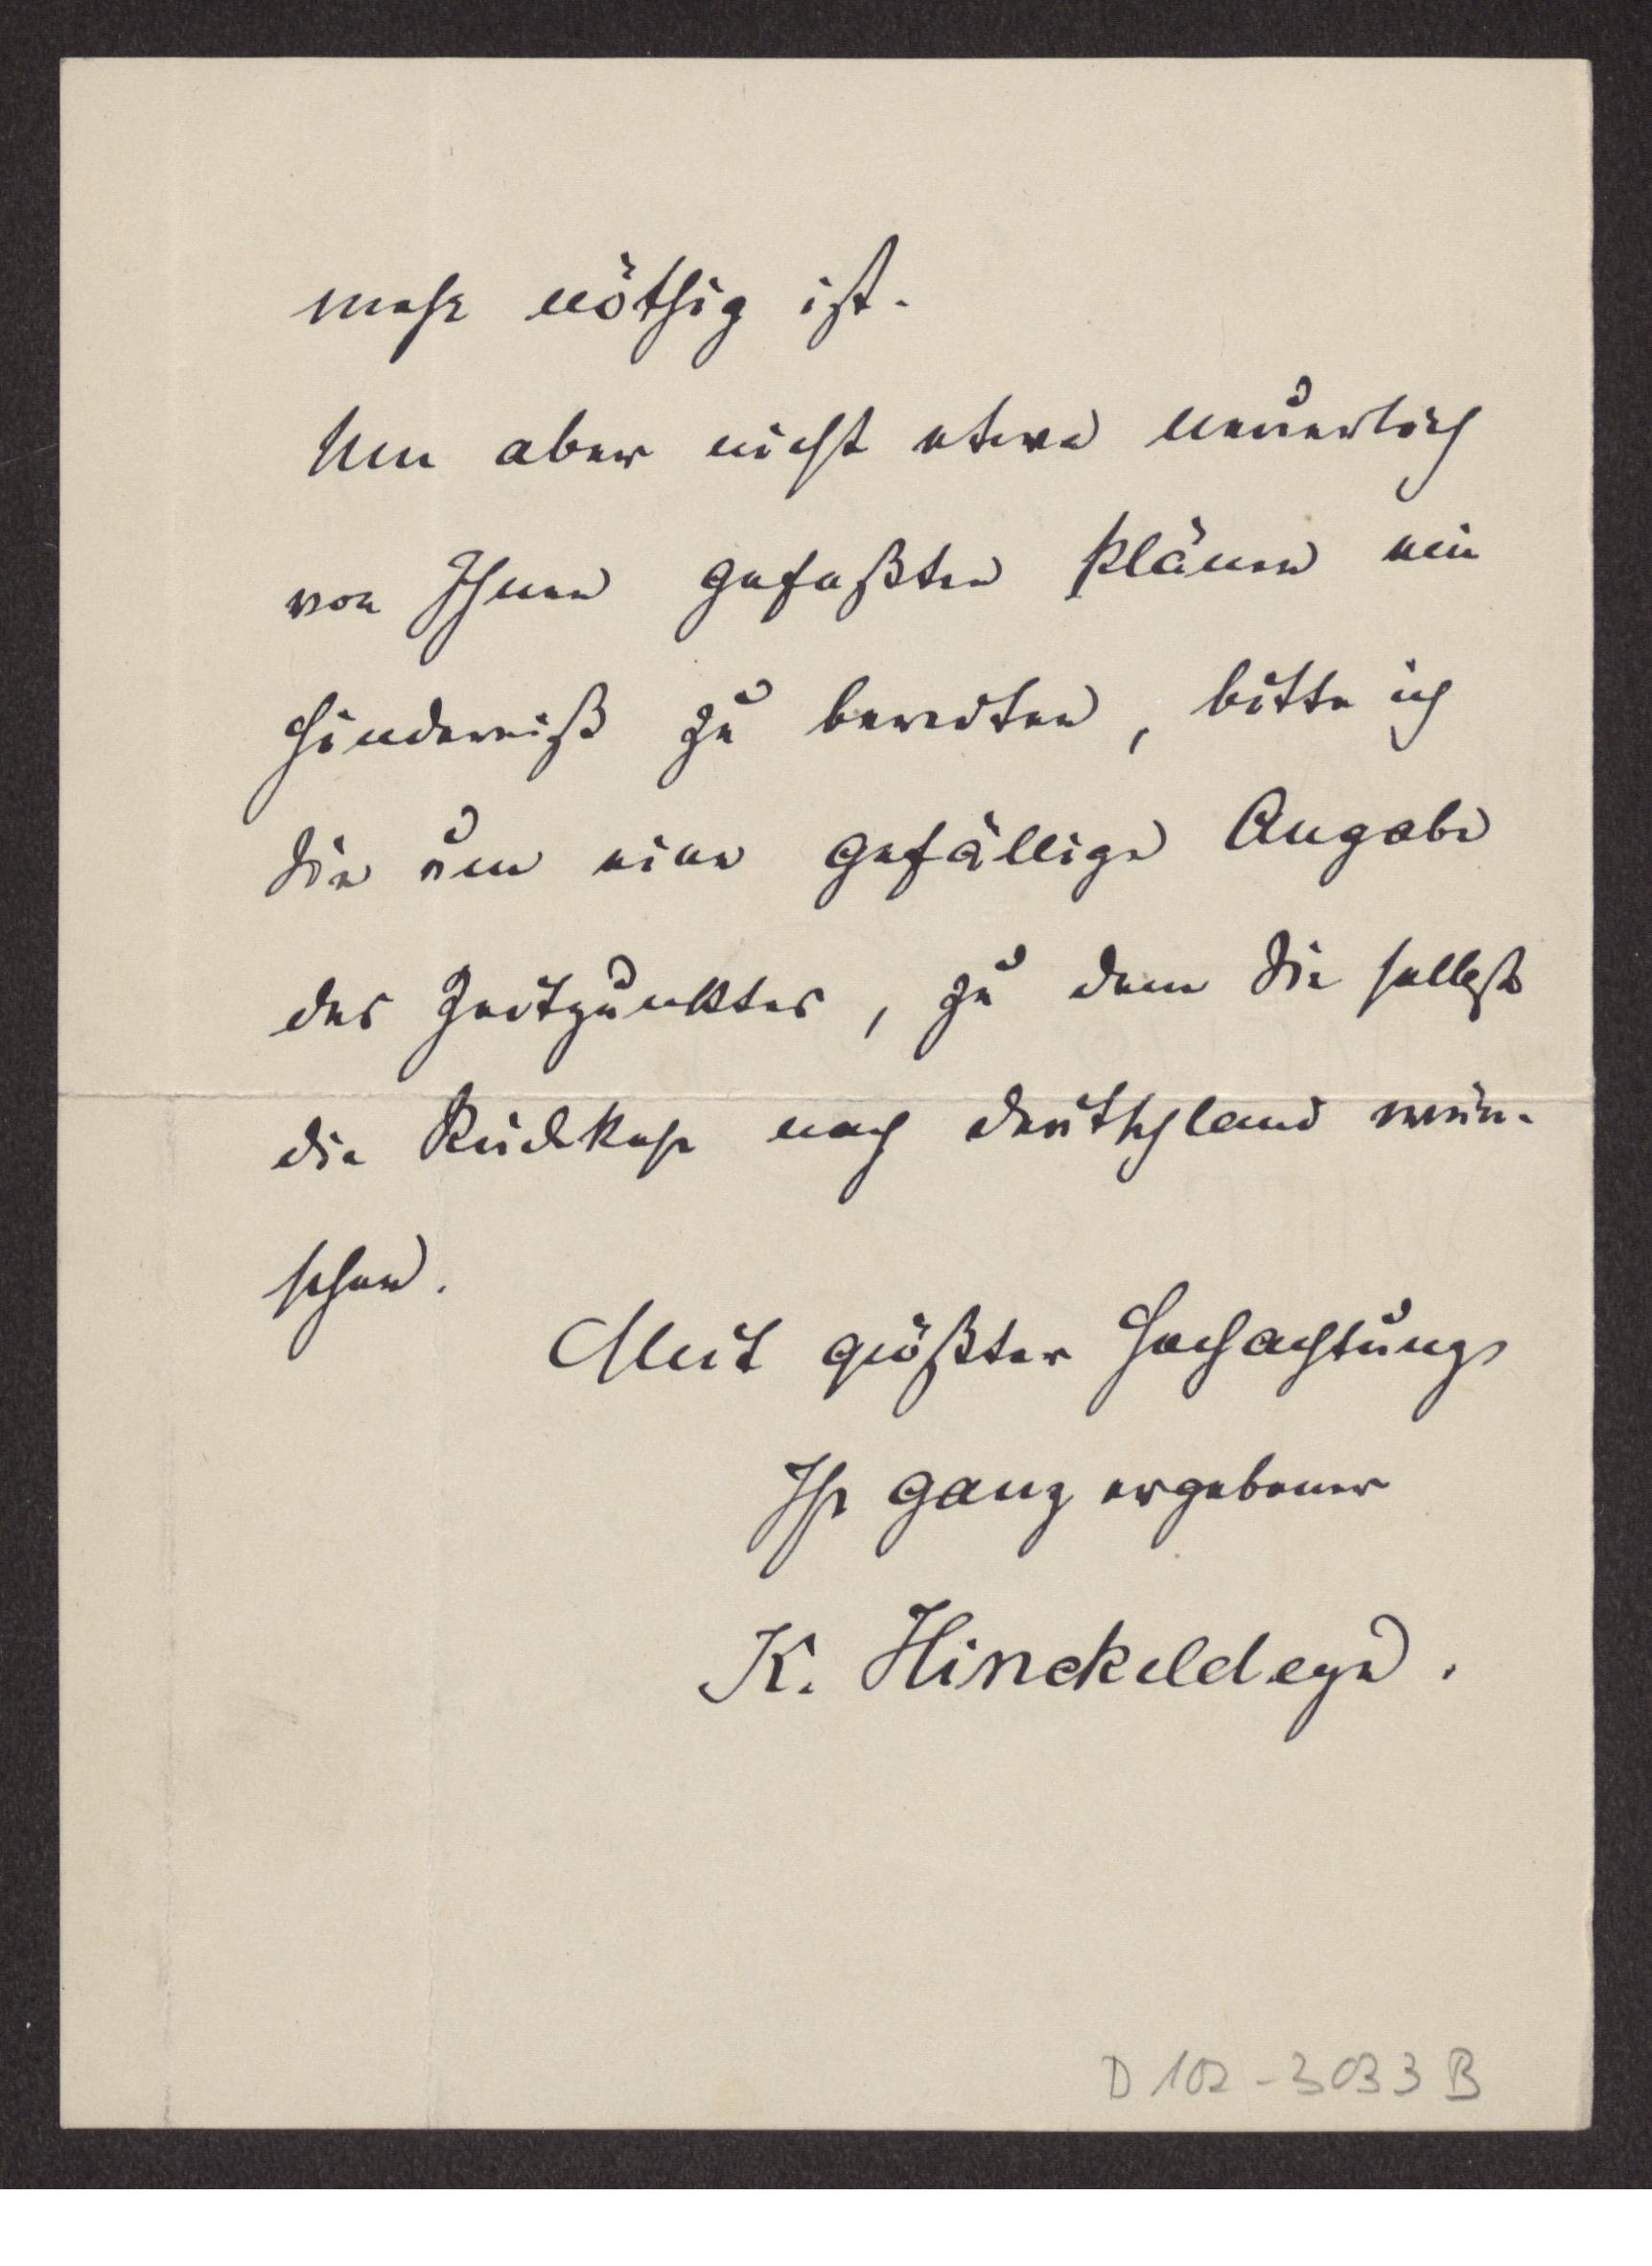 mehr nöthig ist.
Um aber nicht etwa neuerlich
von Ihnen gefaßten Plänen ein
Hinderniß zu bereiten, bitte ich
Sie um eine gefällige Angabe
des Zeitpunktes, zu dem Sie selbst
die Rückkehr nach Deutschland wün-
schen.
Mit größter Hochachtung
Ihr ganz ergebener
K. Hinckeldeyn.
D 102-3033 B